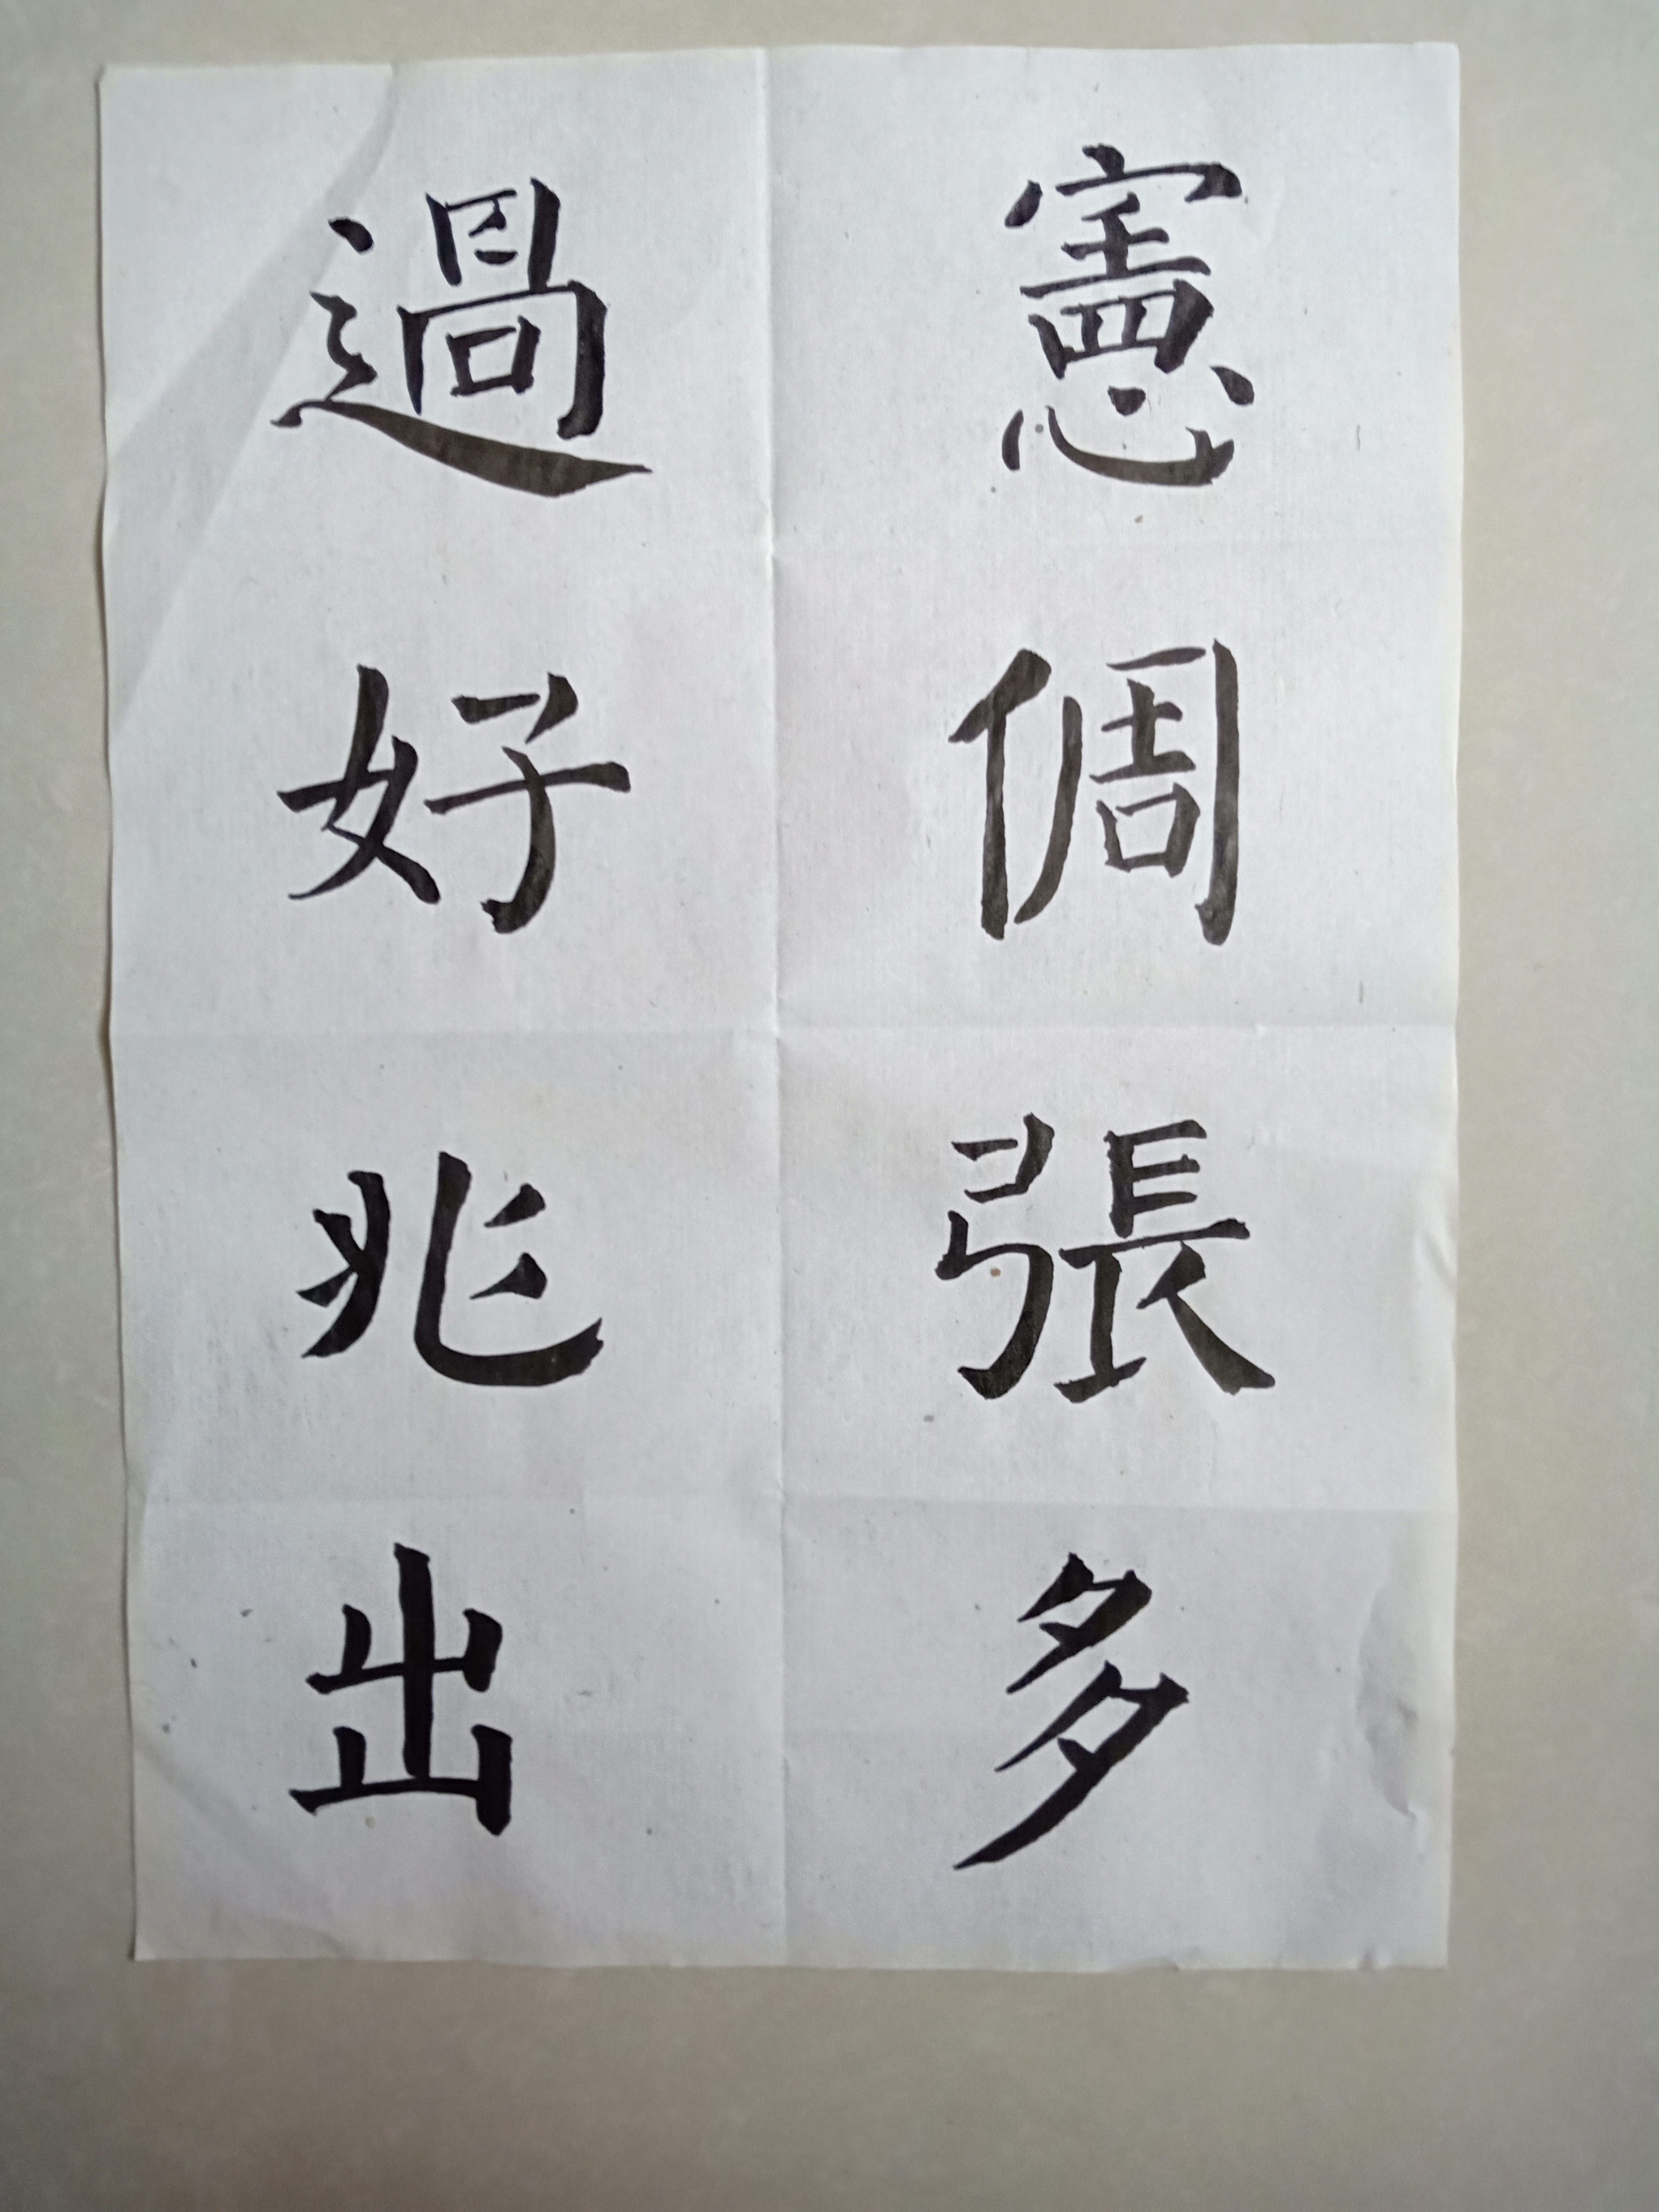 憲倜張多
過好兆出